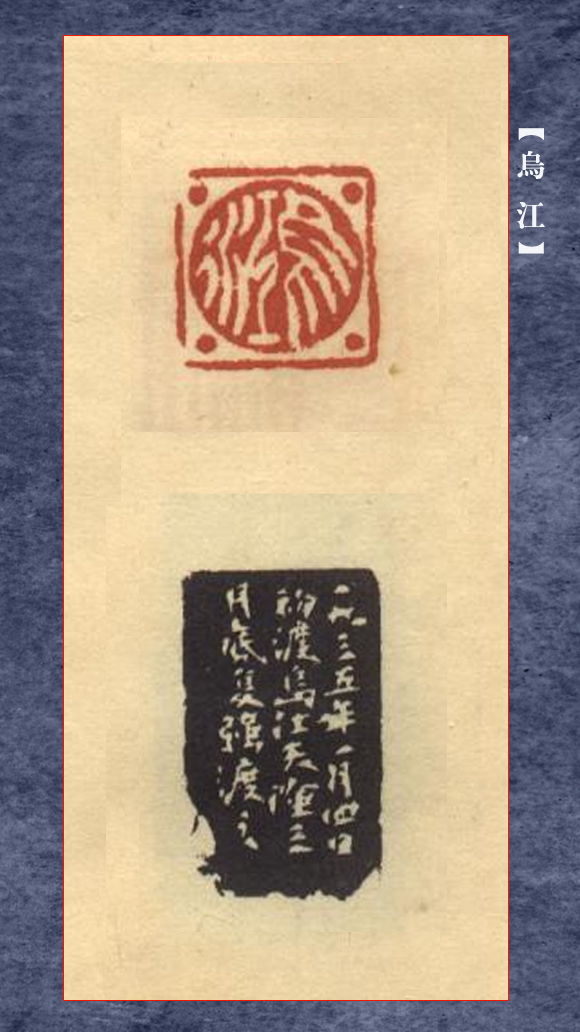 【烏江】
烏江
一九三五年一月四日
初渡烏江天險三
月底复強渡之